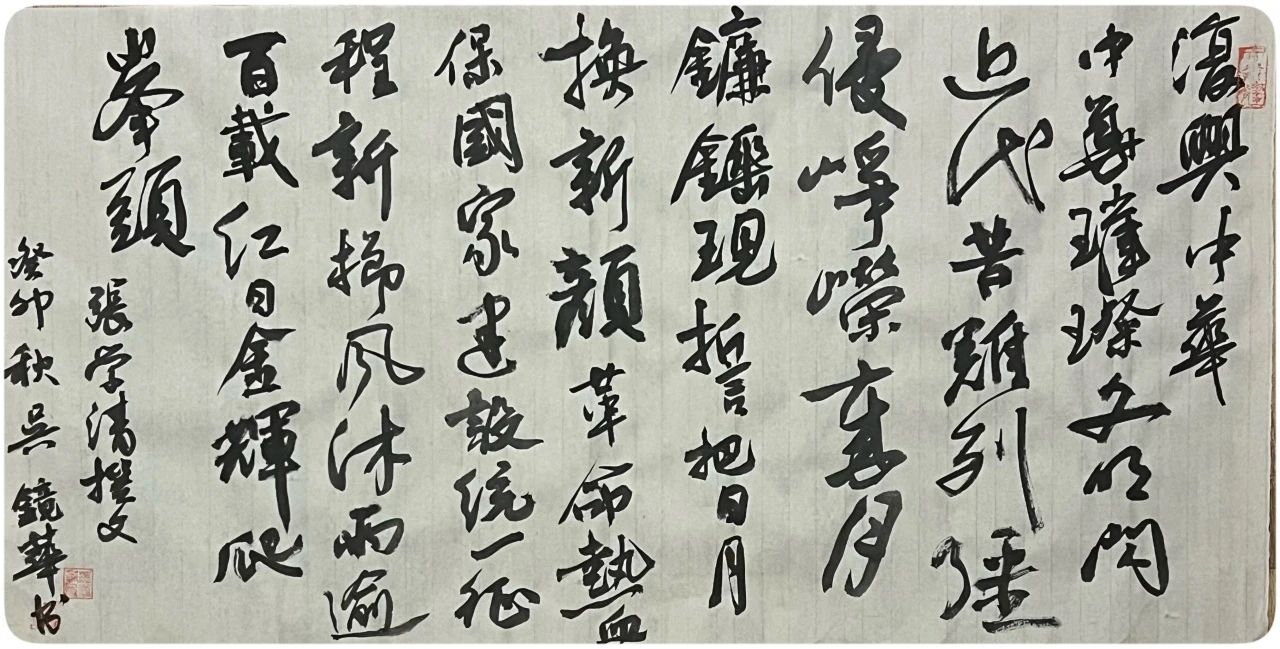 復興中華
中尊璀璨文明閃
近代苦難列强
侵崢嶸歲月
鐮鎚現誓把日月
換新顏革命熱血
保國家建設統一征
程新櫛風沐雨逾
百載紅日金輝爬
峯頭
張学清撰文
癸卯秋吳鏡華书